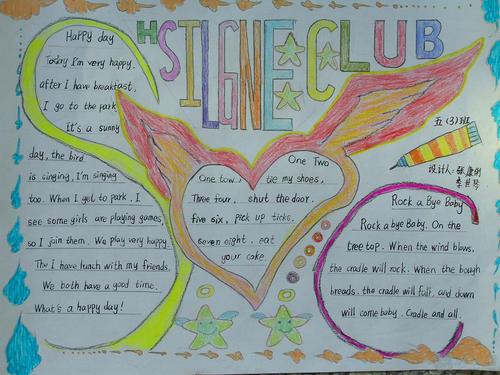 HSILGNE CLUB
HaPPy day
Today I'm very happy.
after I have breakfast,
I go to the park
It's a sunny
day, the bird
is singing, I'm singing
too. When I get to park, I
see some girls are playing games,
so I join them. We play very happy.
The I have lunch with my friends.
We both have a good time.
What's a happy day!
One Two
One tow, tie my shoes,
Three four, shut the door.
five six, pick up ticks.
seven eight, eat
your cake.
五(3)班
设计人:张康俐
Rock a Bye Baby
Rock a bye Baby. On the
tree top. When the wind blows,
the cradle will rock. when the bough
breads. the cradle will fall. and down
will come baby. Cradle and all.